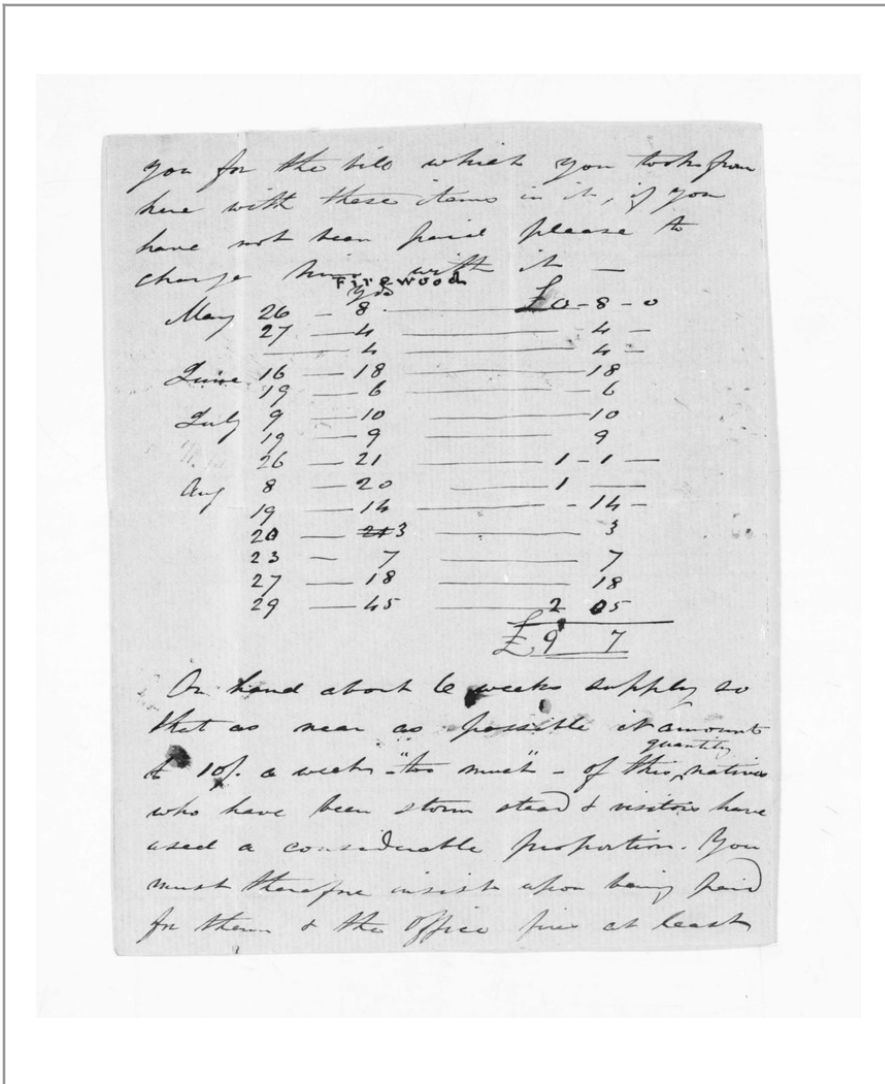 you for the bill which you took from
here with these items in it, if you
have not been paid please to
charge him with it —
Firewood
yds
May 26 — 8 — £0-8-0
27 — 4 — 4 —
— 4 — 4 —
June 16 — 18 — 18
19 — 6 — 6
July 9 — 10 — 10
19 — 9 — 9
26 — 21 — 1-1 —
Aug 8 — 20 — 1 —
19 — 14 — -14-
20 — 3 — 3
23 — 7 — 7
27 — 18 — 18
29 — 45 — 2 05
£9 7
On hand about 6 weeks supply so
that as near as possible it amounts
to 10/. a week - "too much" - of this quantity natives
who have been storm stead & visitors have
used a considerable proportion. You
must therefore insist upon being paid
for them & the office fire at least